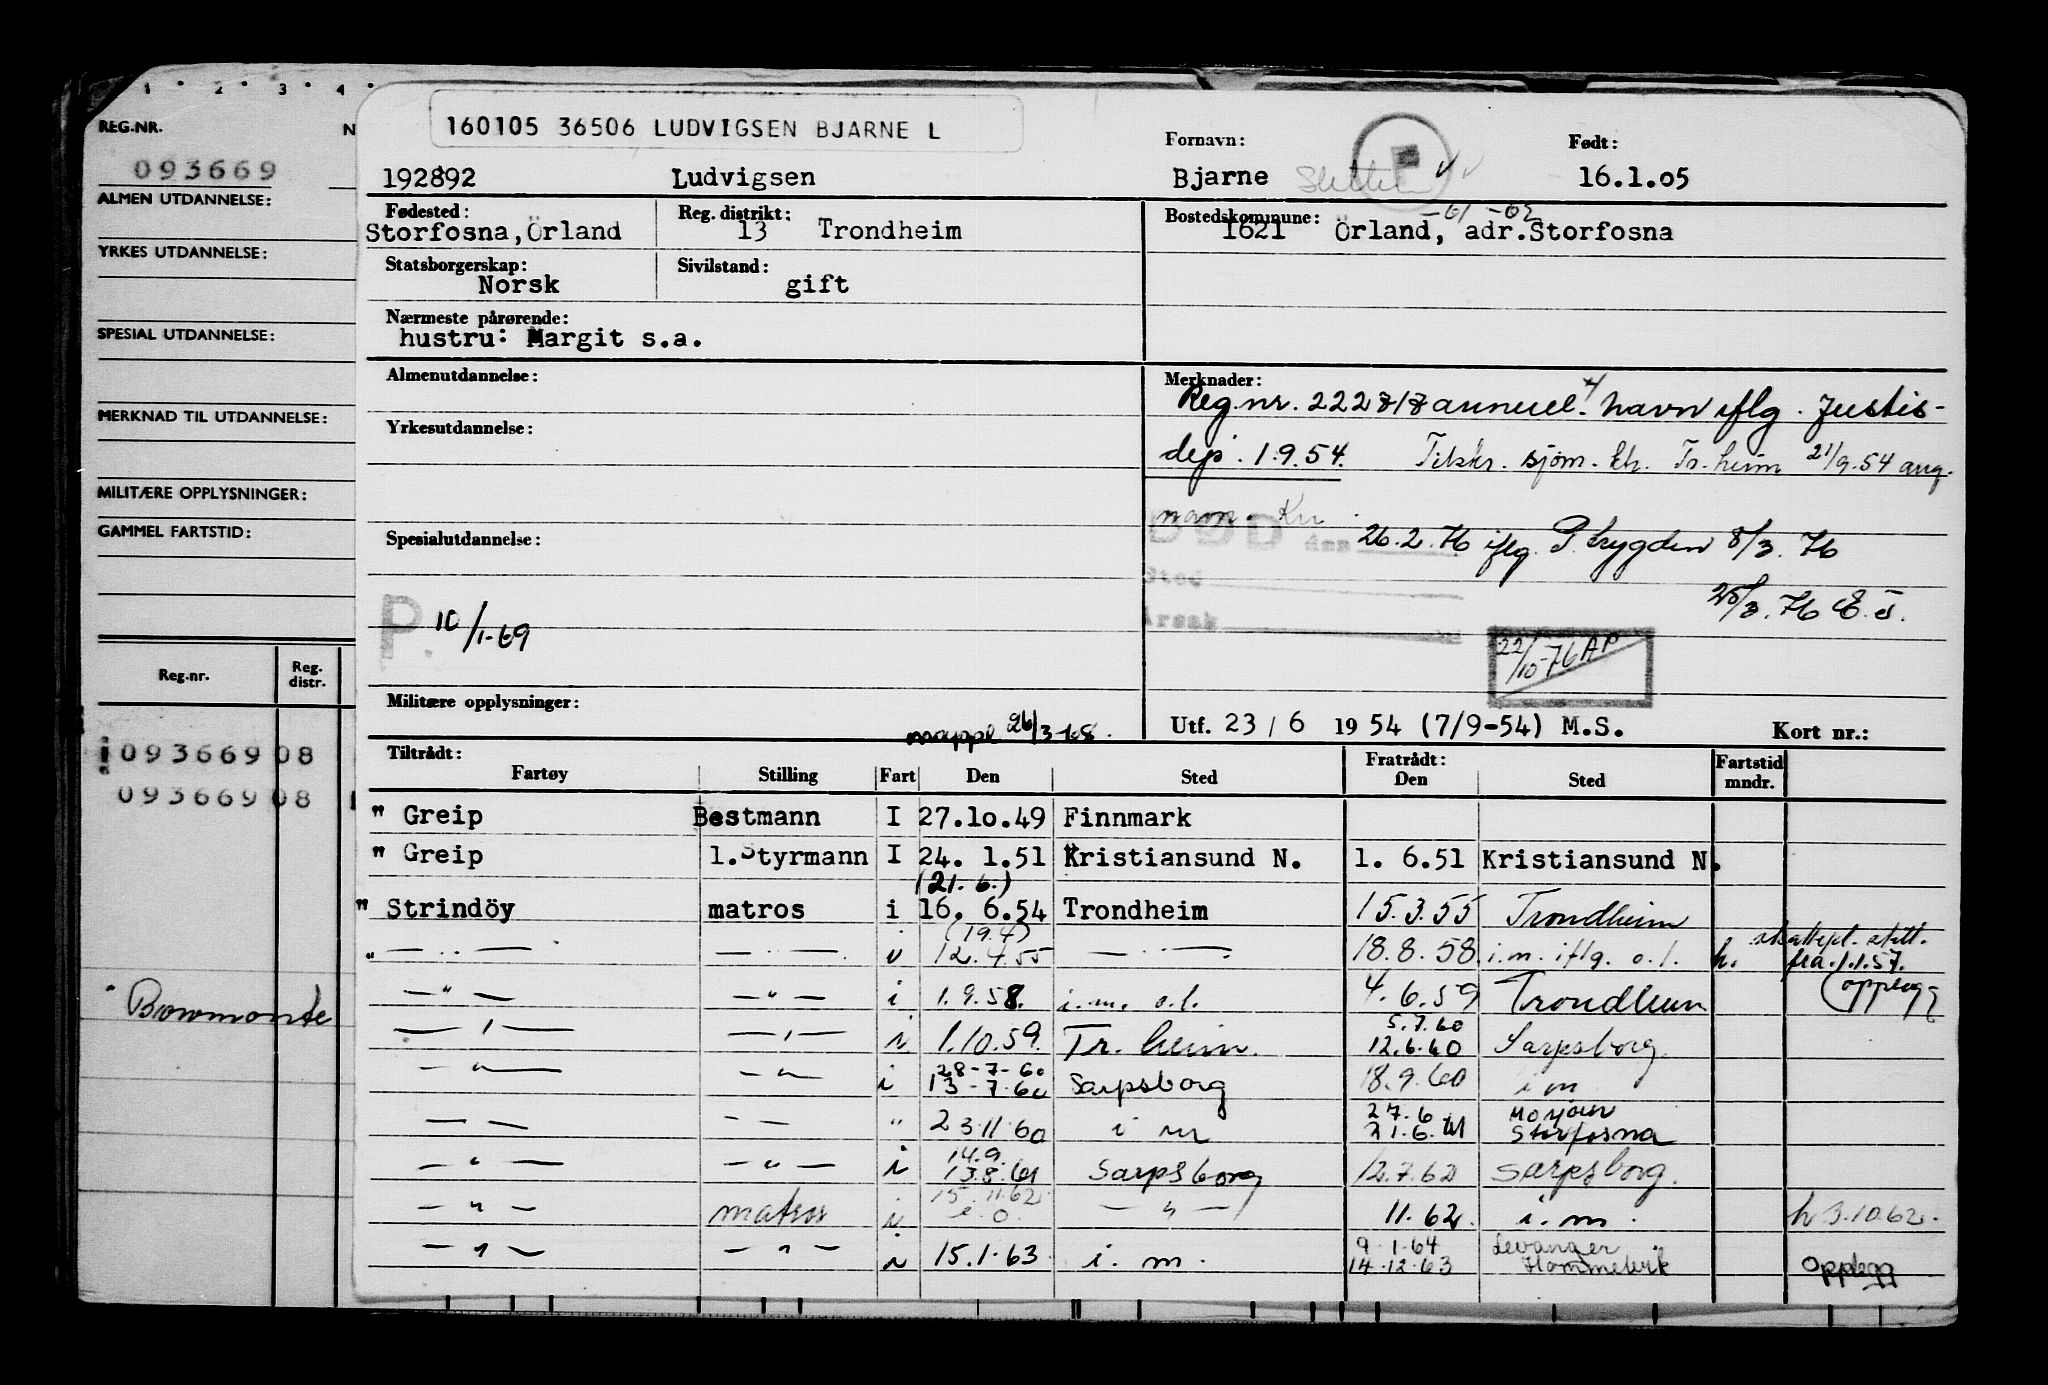 1 2 3 4
REG.NR.
N
093669
ALMEN UTDANNELSE:
YRKES UTDANNELSE:
SPESIAL UTDANNELSE:
MERKNAD TIL UTDANNELSE:
MILITÆRE OPPLYSNINGER:
GAMMEL FARTSTID:
Reg.nr. Reg. distr.
093669 08
093669 08
Bowmonte
160105 36506 LUDVIGSEN BJARNE L
Fornavn: F Født:
192892 Ludvigsen Bjarne 16.1.05
Fødested: Reg. distrikt: Bostedskommune: -61 -62
Storfosna, Örland 13 Trondheim 1621 Örland, adr.Storfosna
Statsborgerskap: Sivilstand:
Norsk gift
Nærmeste pårørende:
hustru: Margit s.a.
Almenutdannelse:
Yrkesutdannelse:
Spesialutdannelse:
P. 10/1-69
Militære opplysninger:
mappe 26/3-68.
Merknader:
Reg.nr. 222717 annuel. navn iflg. Justis-
dep. 1.9.54. Tilskr. sjøm. kt. Tr.heim 21/9.54 ang.
navn.
DØD den 26.2.76 iflg. P.trygden 8/3.76
Sted
Årsak
25/3.76 E.J.
22/10-76 AP
Utf. 23 / 6 1954 (7/9-54) M.S. Kort nr.:
Tiltrådt: Fratrådt: Fartstid
Fartøy Stilling Fart Den Sted Den Sted mndr.
" Greip Bestmann I 27.10.49 Finnmark
" Greip 1.Styrmann I 24. 1.51 Kristiansund N. 1. 6.51 Kristiansund N.
(21.6.)
" Strindöy matros i 16. 6.54 Trondheim 15.3.55 Trondheim
(19.4)
" — " — — " — i 12.4.55 — " — 18.8.58 i.m. iflg. o.l. h. skattepl. slutt. fra 1.1.57.
— " — — " — i 1.9.58. i.m. o.l. 4.6.59 Trondheim (opplegg
5.7.60
— " — — " — i 1.10.59. Tr.heim. 12.6.60 Sarpsborg
28-7-60
— " — — " — i 13-7-60 Sarpsborg 18.9.60 i m
27.6 Mosjøen
— — — — " 23.11.60 i m 21.6.61 Storfosna
14.9.
— " — — " — i 13.8.61 Sarpsborg 12.7.62 Sarpsborg.
15.11.62
— " — matros i — " — 11.62. i.m. h 3.10.62.
9.1.64 Levanger
— " — — " — i 15.1.63 i.m. 14.12.63 Hommelvik opplegg